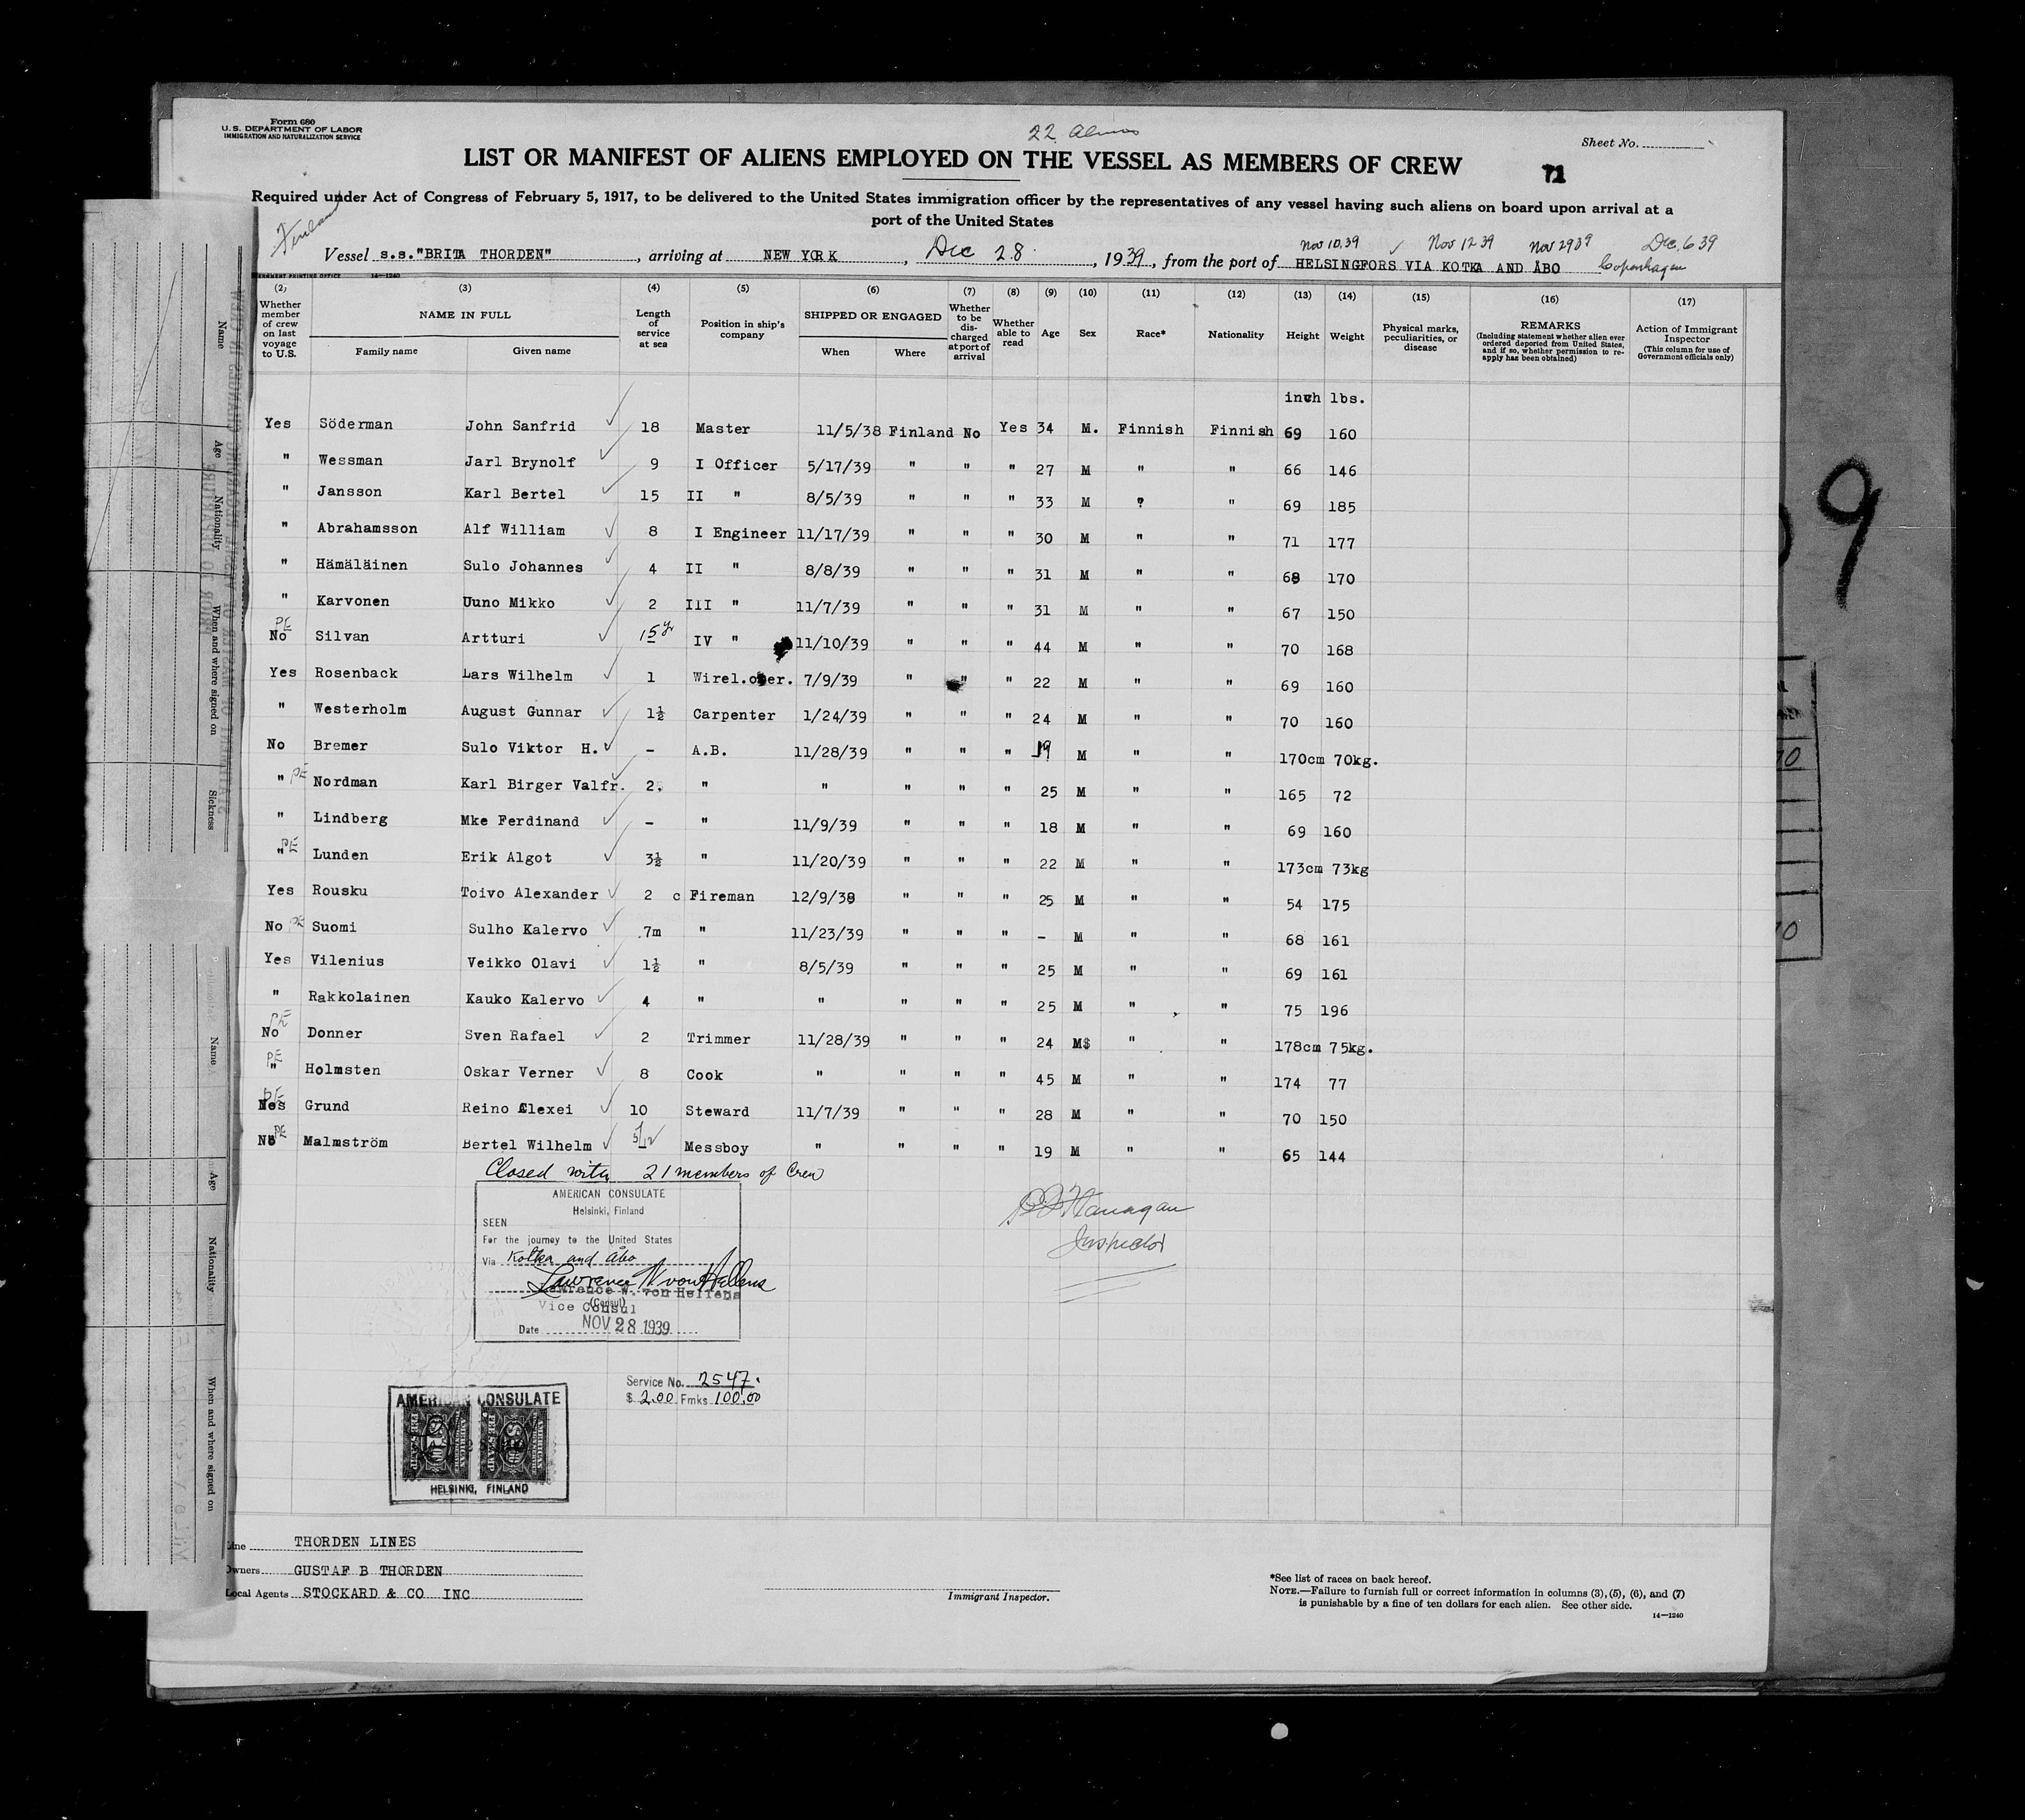 Form 680
U.S. DEPARTMENT OF LABOR
IMMIGRATION AND NATURALIZATION SERVICE
22 aliens
Sheet No.
LIST OR MANIFEST OF ALIENS EMPLOYED ON THE VESSEL AS MEMBERS OF CREW
71
Required under Act of Congress of February 5, 1917, to be delivered to the United States immigration officer by the representatives of any vessel having such aliens on board upon arrival at a
port of the United States
Finland
Nov 10.39 Nov 12 39 Nov 29 39 Dec. 6 39
Vessel s.s."BRITA THORDEN", arriving at NEW YORK, Dec 28, 1939, from the port of HELSINGFORS VIA KOTKA AND ÅBO Copenhagen
14—1240
(2) (3) (4) (5) (6) (7) (8) (9) (10) (11) (12) (13) (14) (15) (16) (17)
Whether member of crew on last voyage to U.S. NAME IN FULL Family name Given name Length of service at sea Position in ship's company SHIPPED OR ENGAGED When Where Whether to be discharged at port of arrival Whether able to read Age Sex Race* Nationality Height Weight Physical marks, peculiarities, or disease REMARKS (Including statement whether alien ever ordered deported from United States, and if so, whether permission to reapply has been obtained) Action of Immigrant Inspector (This column for use of Government officials only)
inch lbs.
Yes Söderman John Sanfrid 18 Master 11/5/38 Finland No Yes 34 M. Finnish Finnish 69 160
" Wessman Jarl Brynolf 9 I Officer 5/17/39 " " " 27 M " " 66 146
" Jansson Karl Bertel 15 II " 8/5/39 " " " 33 M ? " 69 185
" Abrahamsson Alf William 8 I Engineer 11/17/39 " " " 30 M " " 71 177
" Hämäläinen Sulo Johannes 4 II " 8/8/39 " " " 31 M " " 68 170
" Karvonen Uuno Mikko 2 III " 11/7/39 " " " 31 M " " 67 150
PE No Silvan Artturi 15 yr IV " 11/10/39 " " " 44 M " " 70 168
Yes Rosenback Lars Wilhelm 1 Wirel.oper. 7/9/39 " " " 22 M " " 69 160
" Westerholm August Gunnar 1½ Carpenter 1/24/39 " " " 24 M " " 70 160
No Bremer Sulo Viktor H. - A.B. 11/28/39 " " " 19 M " " 170cm 70kg.
" PE Nordman Karl Birger Valfr. 2. " " " " " 25 M " " 165 72
" Lindberg Mke Ferdinand - " 11/9/39 " " " 18 M " " 69 160
PE " Lunden Erik Algot 3½ " 11/20/39 " " " 22 M " " 173cm 73kg
Yes Rousku Toivo Alexander 2 c Fireman 12/9/38 " " " 25 M " " 54 175
No PE Suomi Sulho Kalervo .7m " 11/23/39 " " " - M " " 68 161
Yes Vilenius Veikko Olavi 1½ " 8/5/39 " " " 25 M " " 69 161
" Rakkolainen Kauko Kalervo 4 " " " " " 25 M " " 75 196
PE No Donner Sven Rafael 2 Trimmer 11/28/39 " " " 24 M$ " " 178cm 75kg.
PE " Holmsten Oskar Verner 8 Cook " " " " 45 M " " 174 77
PE Grund Reino Alexei 10 Steward 11/7/39 " " " 28 M " " 70 150
No PE Malmström Bertel Wilhelm 5/12 Messboy " " " " 19 M " " 65 144
Closed with 21 members of Crew
AMERICAN CONSULATE
Helsinki, Finland
SEEN
For the journey to the United States
Via Kotka and Åbo
Lawrence W. von Hellens
Lawrence W. von Hellens
(Consul)
Vice Consul
Date NOV 28 1939
Flanagan
Inspector
Service No. 2547.
$ 2.00 Fmks 100.00
AMERICAN CONSULATE
HELSINKI, FINLAND
Line THORDEN LINES
Owners GUSTAF B THORDEN
Local Agents STOCKARD & CO INC
Immigrant Inspector.
*See list of races on back hereof.
NOTE.—Failure to furnish full or correct information in columns (3), (5), (6), and (7)
is punishable by a fine of ten dollars for each alien. See other side.
14—1240
Name
Age
Nationality
When and where signed on
Sickness
Name
Age
Nationality
When and where signed on
9